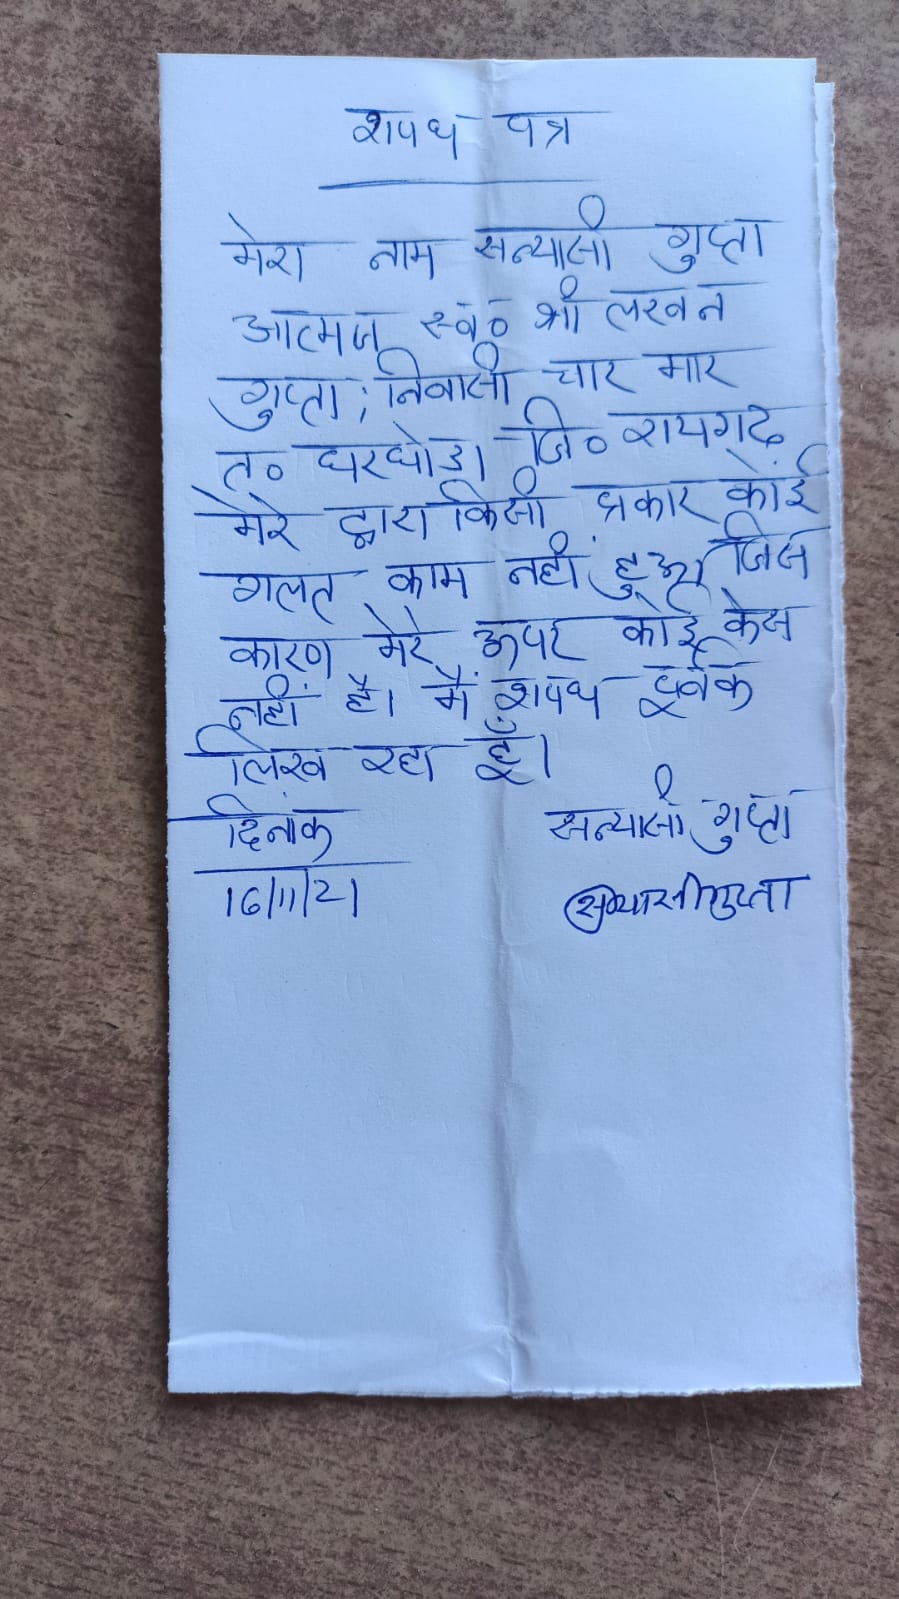 शपथ पत्र
मेरा नाम सन्यासी गुप्ता
आत्मज स्व० श्री लखन
गुप्ता, निवासी चार मार
त० घरघोडा जि० रायगढ
मेरे द्वारा किसी प्रकार कोई
गलत काम नहीं हुआ जिस
कारण मेरे ऊपर कोई केस
नहीं है। मैं शपथ पूर्वक
लिख रहा हूँ।
दिनांक सन्यासी गुप्ता
16/11/21 सन्यासी गुप्ता